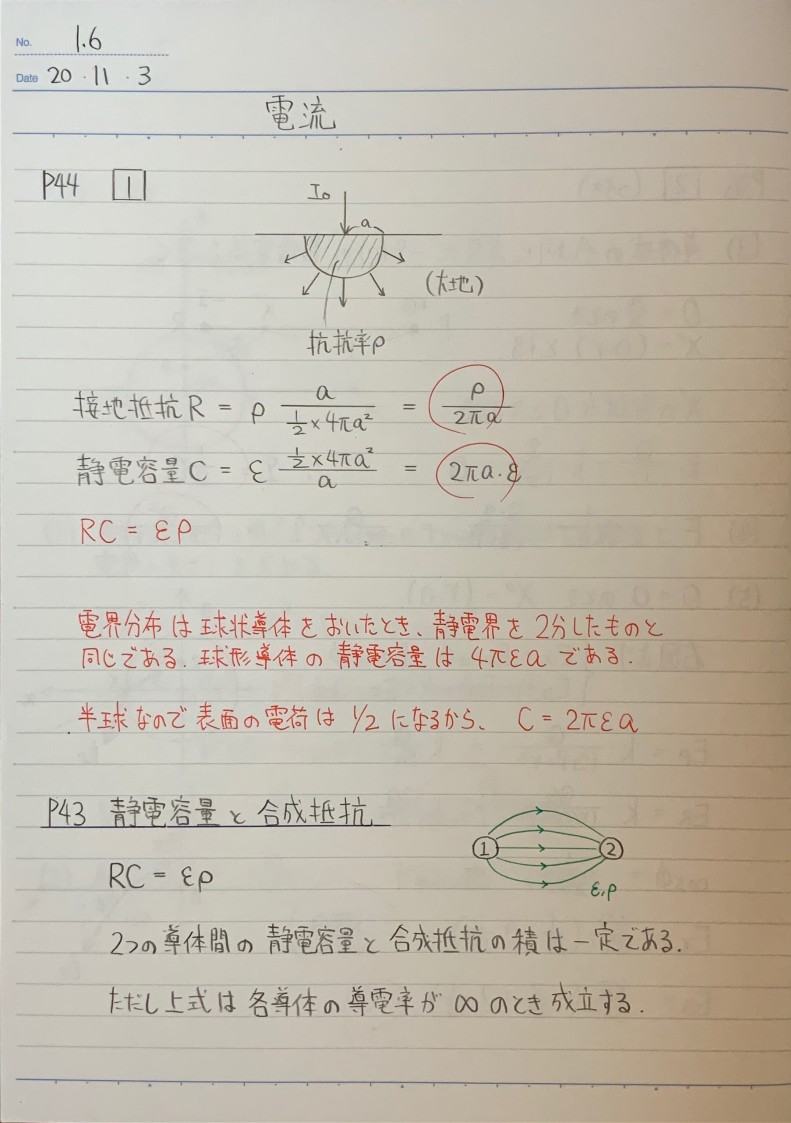 No. 1.6
Date 20・11・3
電流
P44 1
I₀
a
(大地)
抗抗率ρ
接地抵抗R = ρ a / (1/2 × 4πa²) = ρ / 2πa
静電容量C = ε (1/2 × 4πa²) / a = 2πa・ε
RC = ερ
電界分布は球状導体をおいたとき、静電界を2分したものと
同じである. 球形導体の静電容量は 4πεa である.
半球なので表面の電荷は 1/2 になるから、 C = 2πεa
P43 静電容量と合成抵抗
1 2
ε,ρ
RC = ερ
2つの導体間の静電容量と合成抵抗の積は一定である.
ただし上式は各導体の導電率が ∞ のとき成立する.